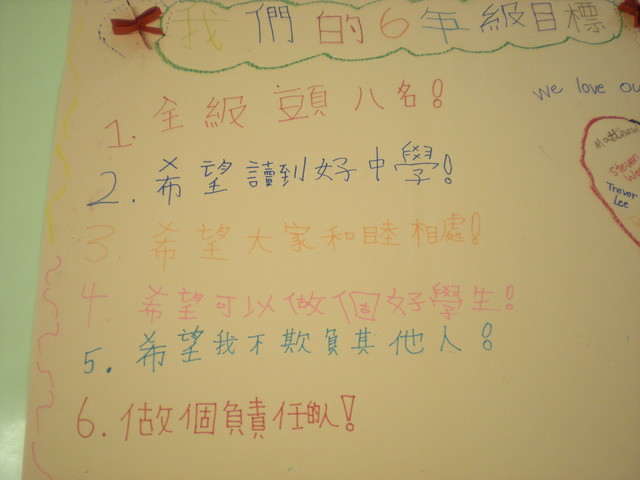 我們的6年級目標
1. 全級頭八名!
2. 希望讀到好中學!
3 希望大家和睦相處!
4. 希望可以做個好學生!
5. 希望我不欺負其他人!
6. 做個負責任的人!
We love ou
Matthew
Steven
Trevor
Lee